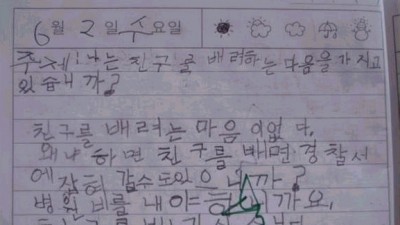 6월 2일 수요일
주제:나는 친구를 배려하는 마음을 가지고
있습니까?
친구를 배려는 마음이었다.
왜냐하면 친구를 배면 경찰서
에 잡혀 갈수도있으니까?
병원비를 내야하니까요.